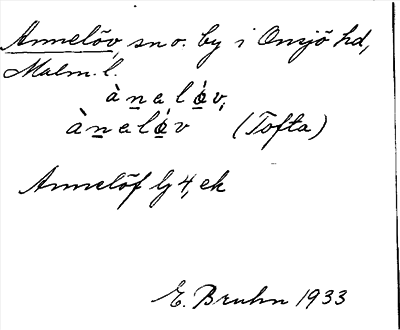 Annelöv, sn o. by i Onsjö hd,
Malm. l.
ànelǿv,
ànelǿv (Tofta)
Annelöf Gj 4, ek
E. Bruhn 1933